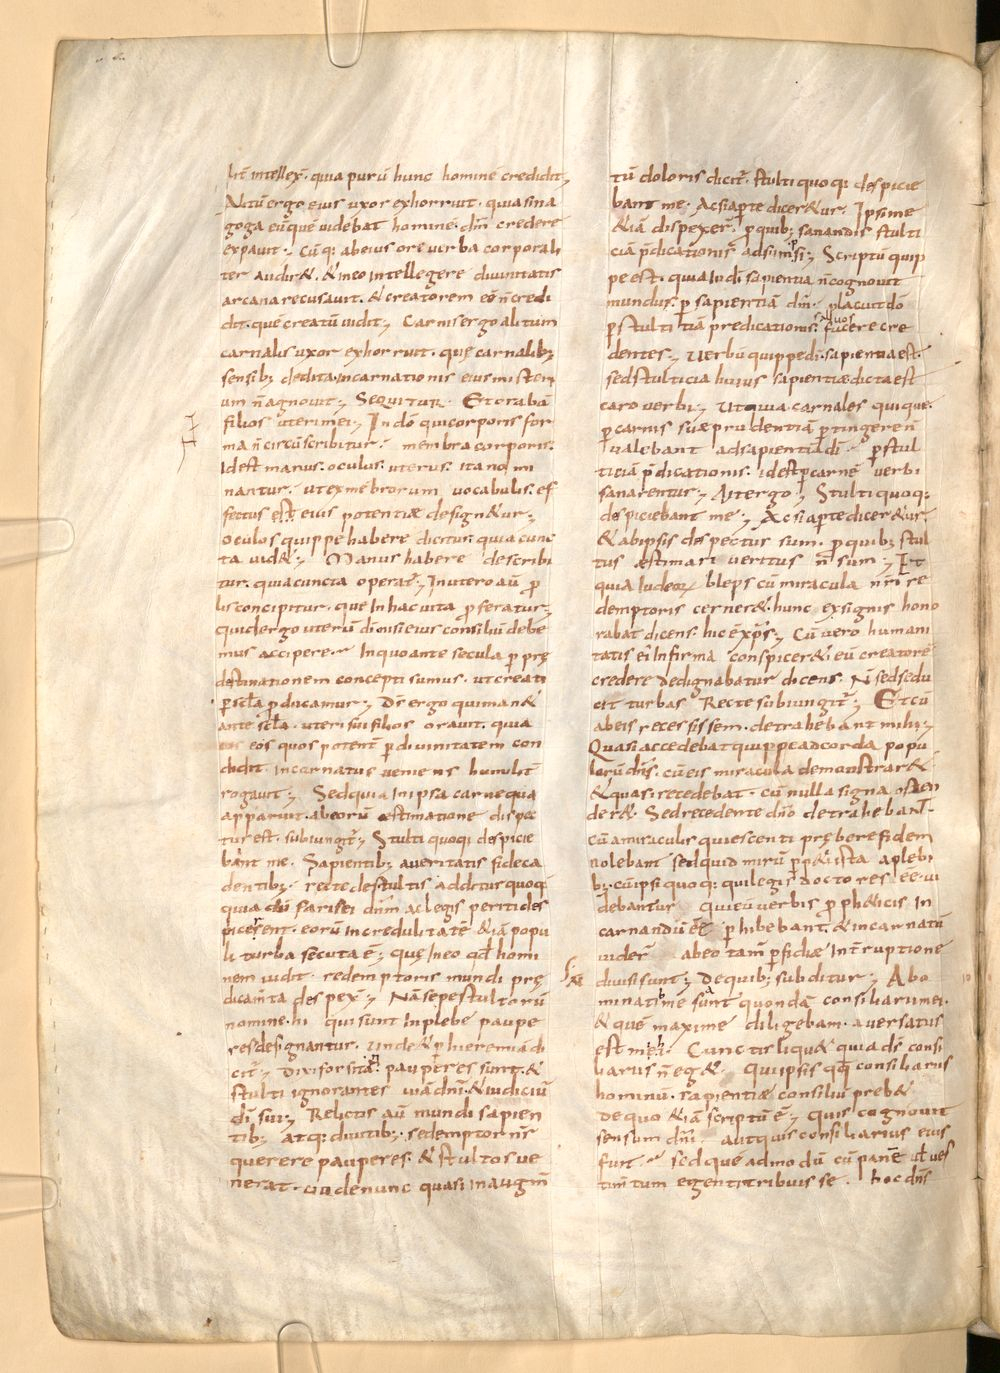 lit intellex̄. quia purū hunc hominē credidit;
Alitū ergo eius uxor exhorruit. quia sina
goga eū quē uidebat hominē. dm̄ credere
expauit; Cūq; ab eius ore uerba corporali
ter audir&. & in eo intellegere diuinitatis
arcana recusauit. & creatorem eō n̄ credi
dit. quē creatū uidit; Carnis ergo alitum
carnalis uxor exhorruit. quię carnalib;
sensib; dedita incarnationis eius misteri
um n̄ agnouit; Sequitur. Et orabā
filios uteri mei; In dō qui corporis for
ma n̄ circūscribitur. membra corporis.
Id est manus. oculus. uterus. ita nomi
nantur. ut ex mēbrorum uocabulis. ef
fectus ēst eius potentiæ design&ur;
oculos quippe habere dicitur. quia cunc
ta uid&; Manus habere describi
tur. quia cuncta operat̄; In utero aū p
lis concipitur. que In hac uita pferatur;
quid ergo uterū di nisi eius consiliū debe
mus accipere. In quo ante secula p prę
destinationem concepti sumus. ut creati
p scl̄a pducamur; Ds̄ ergo qui man&
ante scl̄a. uteri sui filios orauit. quia
eos quos potent̄ p diuinitatem con
didit. incarnatus ueniens humilit̄
rogauit; Sed quia In ipsa carne qua
apparuit. ab eorū æstimatione dispec
tus est. subiungit̄; Stulti quoq; despicie
bant me. Sapientib; a ueritatis fide ca
dentib;. recte de stultis additur quoq;
quia dū farisei dnm̄ ac legis periti des
picerent. eorū incredulitatē &iā popu
li turba secuta ē; quę In eo qd̄ homi
nem uidit. redemptoris mundi prę
dicam̄ta despex̄; Nā sępe stultorū
nomine. hi qui sunt In plebe paupe
res designantur. Unde & p hieremiā di
cit̄; pauperes sunt &
stulti ignorantes uiā dn̄i. & iudiciū
dī sui; Relictis aū mundi sapien
tib; atq; diuitib;. redemptor nr̄
querere pauperes. & stultos ue
nerat. unde nunc quasi In augm̄
tū doloris dicit̄. stulti quoq; despicie
bant me. Ac si aperte dicer&ur. Ipsi me
&iā dispexer̄. p quib; sanandis stulti
ciā p̄dicationis adsumpsi; Scriptū quip
pe est. quia In di sapientia n̄ cognouit
mundus. p sapientiā dm̄. placuit dō
p stultitiā predicationis. saluos facere cre
dentes; Uerbū quippe di. sapientia est.
sed stulticia huius sapientiæ dicta est
caro uerbi; Ut quia carnales quique.
p carnis suæ prudentiā ptingere n̄
ualebant ad sapientiā di. p stul
ticiā p̄dicationis. id est p carnē uerbi
sanarentur; Ait ergo; Stulti quoq;
despiciebant me; Ac si aperte dicer&ur.
& ab ipsis despectus sum. p quib; stul
tus æstimari ueritus n̄ sum; Et
quia Iudeoꝝ plebs cū miracula nr̄i re
demptoris cerner&. hunc ex signis hono
rabat dicens. hic ē xp̄s; Cū uero humani
tatis ei' Infirma conspicer&. eū creatorē
credere dedignabatur dicens. N̄ sed sedu
cit turbas Recte subiungit̄; Et cū
ab eis recessissem. detrahebant mihi;
Quasi accedebat quippe ad corda popu
lorū dn̄s. cū eis miracula demonstrar&.
& quasi recedebat. cū nulla signa osten
der&. Sed recedente dn̄o detrahebant.
cū a miraculis quiescenti pręberę fidem
nolebant sed quid mirū p̄p& ista a plebi
b;. cū ipsi quoq; qui legis doctores ēē ui
debantur qui eū uerbis p ph&icis In
carnandū ēē phibebant. & incarnatū
uider̄ ab eo tam̄ pfidiæ Int̄ruptione
diuisi sunt; De quib; subditur; Abo
minati me sunt quondā consiliarii mei.
& quē maxime diligebam. auersatus
est me; Cunctis liqu& quia ds̄ consi
liarius n̄ eg&. qui ipsis qq̄ consiliariis
hominū. sapientiæ consiliū preb&.
De quo &iā scriptū ē; quis cognouit
sensum dn̄i. aut quis consiliarius eius
fuit. Sed quē ad modū cū panē ul̄ ues
tim̄tum egenti tribuisse. hoc dn̄s